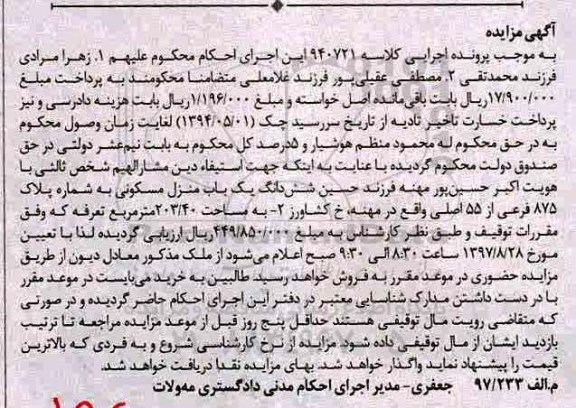 آگهی مزایده
به موجب پرونده اجرایی کلاسه ۹۴۰۷۲۱ این اجرای احکام محکوم علیهم ۱. زهرا مرادی
فرزند محمدتقی ۲. مصطفی عقیلی‌پور فرزند غلامعلی متضامنا محکومند به پرداخت مبلغ
۱۷/۹۰۰/۰۰۰ریال بابت باقی‌مانده اصل خواسته و مبلغ ۱/۱۹۶/۰۰۰ریال بابت هزینه دادرسی و نیز
پرداخت خسارت تاخیر تادیه از تاریخ سررسید چک (۱۳۹۴/۰۵/۰۱) لغایت زمان وصول محکوم
به در حق محکوم له محمود منظم هوشیار و ۵درصد کل محکوم به بابت نیم‌عشر دولتی در حق
صندوق دولت محکوم گردیده با عنایت به اینکه جهت استیفاء دین مشارالهیم شخص ثالثی با
هویت اکبر حسین‌پور مهنه فرزند حسین شش‌دانگ یک باب منزل مسکونی به شماره پلاک
۸۷۵ فرعی از ۵۵ اصلی واقع در مهنه، خ کشاورز ۲- به مساحت ۲۰۳/۴۰مترمربع تعرفه که وفق
مقررات توقیف و طبق نظر کارشناس به مبلغ ۴۴۹/۸۵۰/۰۰۰ریال ارزیابی گردیده لذا با تعیین
مورخ ۱۳۹۷/۸/۲۸ ساعت ۸:۳۰ الی ۹:۳۰ صبح اعلام می‌شود از ملک مذکور معادل دیون از طریق
مزایده حضوری در موعد مقرر به فروش خواهد رسید. طالبین به خرید می‌بایست در موعد مقرر
با در دست داشتن مدارک شناسایی معتبر در دفتر این اجرای احکام حاضر گردیده و در صورتی
که متقاضی رویت مال توقیفی هستند حداقل پنج روز قبل از موعد مزایده مراجعه تا ترتیب
بازدید ایشان از مال توقیفی داده شود مزایده از نرخ کارشناسی شروع و به فردی که بالاترین
قیمت را پیشنهاد نماید واگذار خواهد شد. بهای مزایده نقدا دریافت خواهد شد.
م.الف ۹۷/۲۳۳ جعفری- مدیر اجرای احکام مدنی دادگستری مه‌ولات